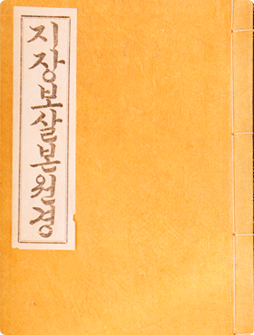 지장보살본원경